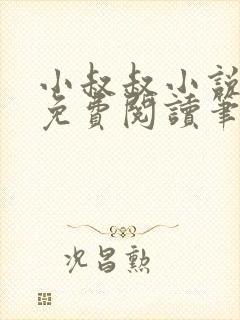 小叔叔小說
免費閱讀筆
况昌勲